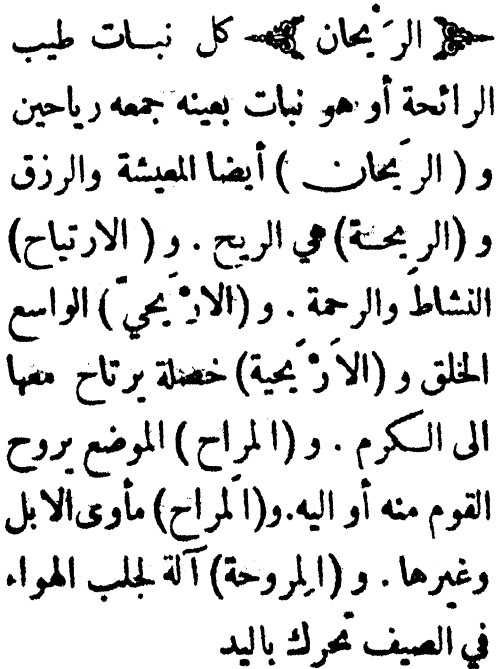 ﴿ الرَيْحان ﴾ كل نبــات طيب
الرائحة أو هو نبات بعينه جمعه رياحين
و ( الرَيحان ) أيضا المعيشة والرزق
و (الريحــة) هي الريح . و ( الارتياح )
النشاط والرحمة . و (الارْيَحيّ ) الواسع
الخلق و (الاَرْيَحية) خصلة يرتاح معها
الى الـكرم . و (المراح ) الموضع يروح
القوم منه أو اليه. و(المَراح) مأوى الابل
وغيرها . و (المِروحة) آلة لجلب الهواء
في الصيف تحرك باليد